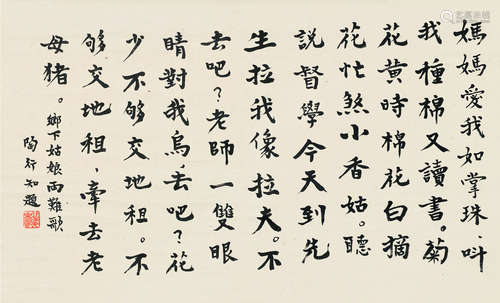 媽媽愛我如掌珠．呌
我種棉又讀書。菊
花黄時棉花白摘
花忙煞小香姑。聴
說督學今天到先
生拉我像拉夫。不
去吧？老師一雙眼
睛對我烏．去吧？花
少不够交地租。不
够交地租，牽去老
母猪。鄉下姑娘两難歌
陶行知題